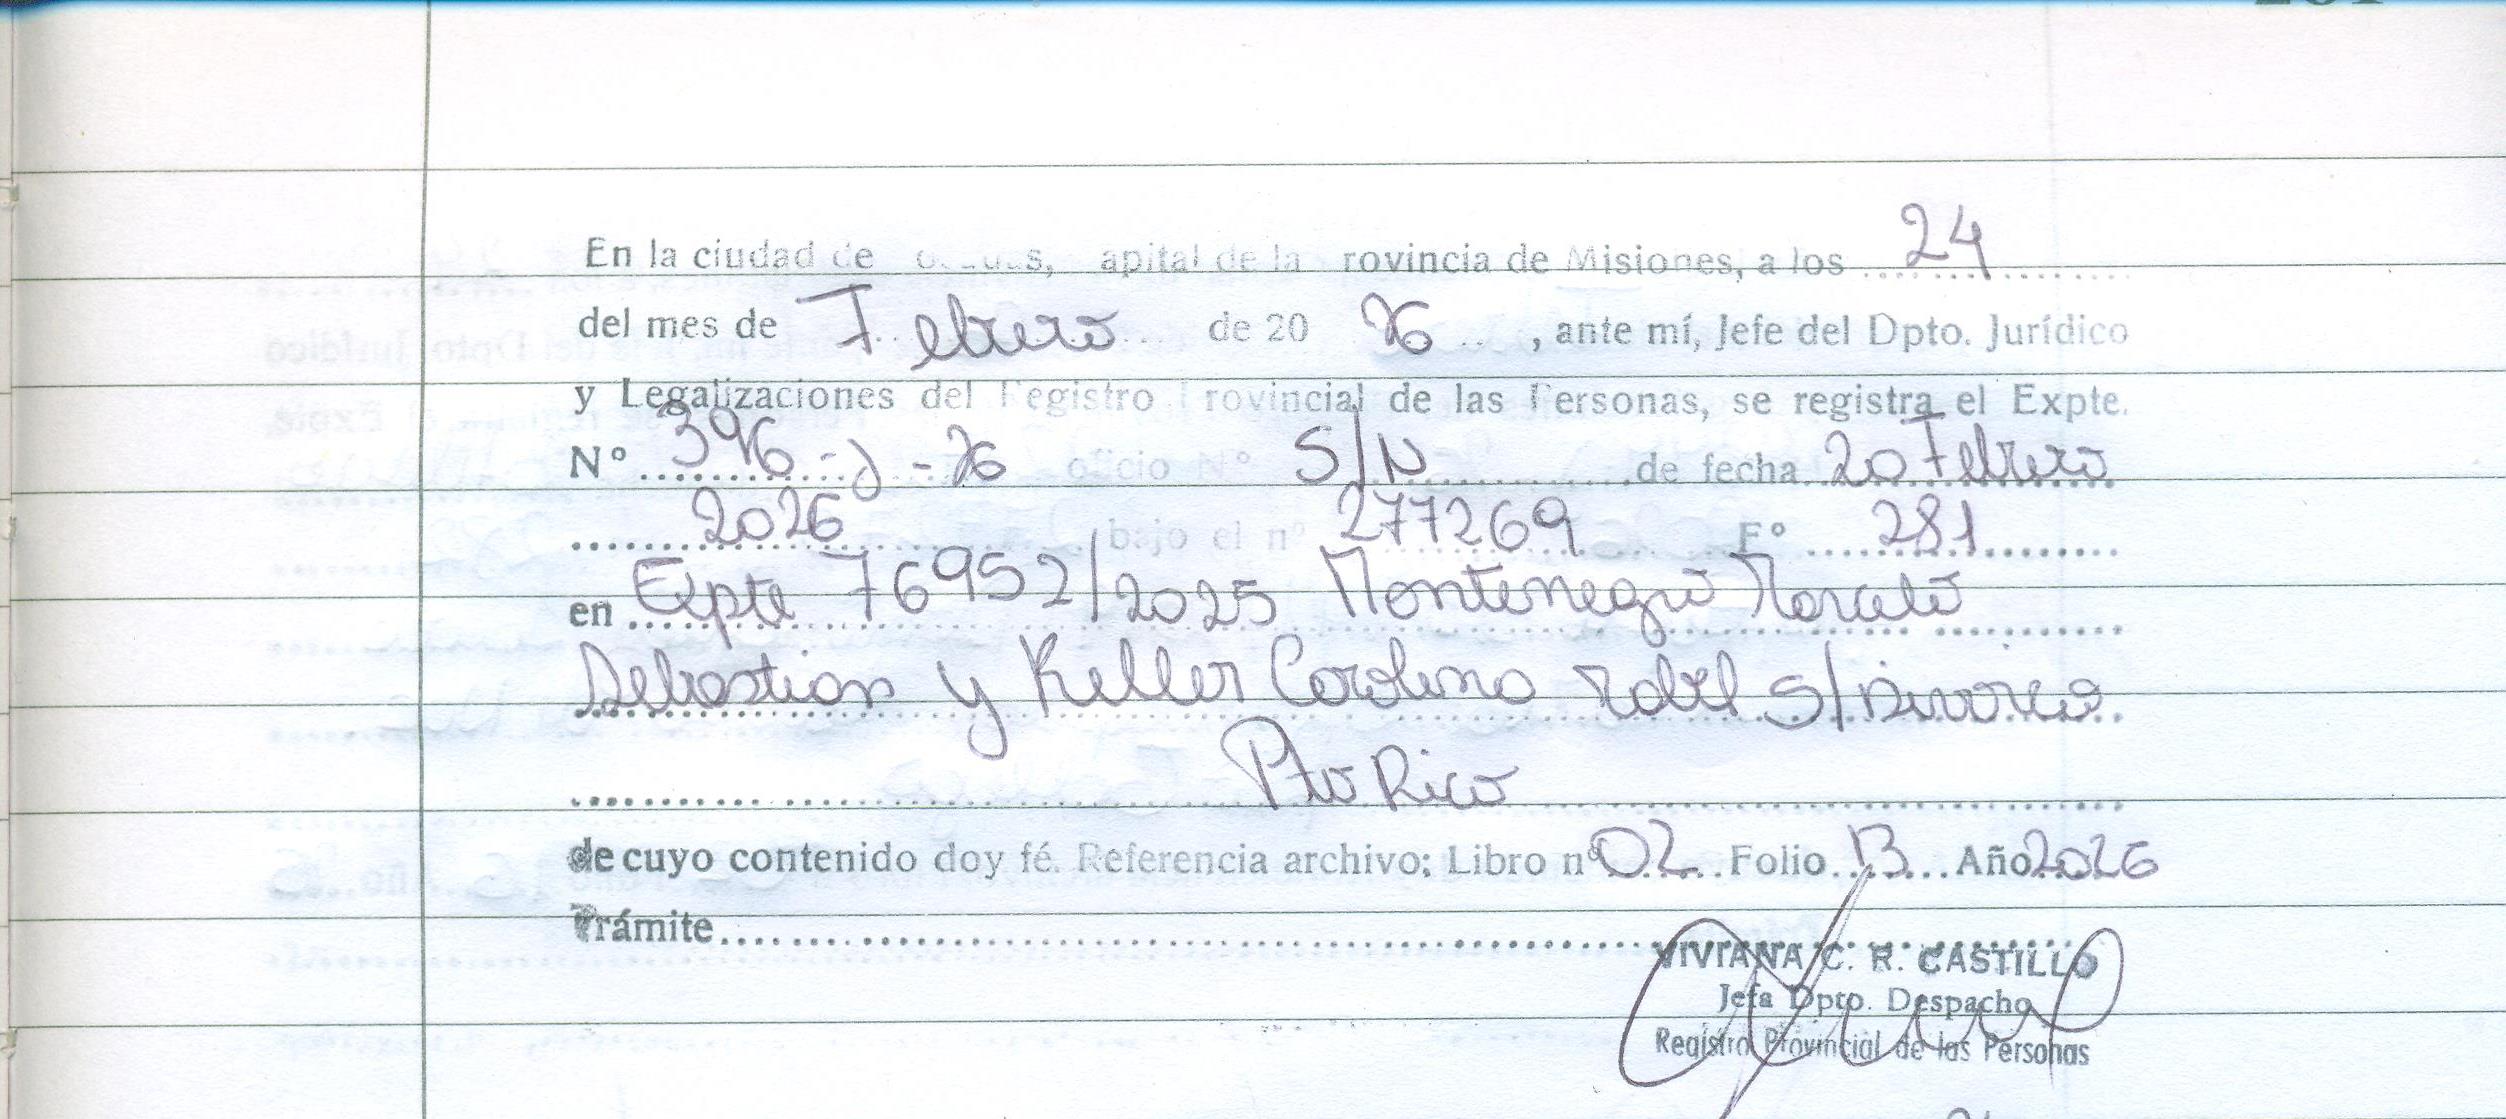 281
En la ciudad de Posadas, Capital de la Provincia de Misiones, a los 24
del mes de Febrero de 20 26, ante mí, Jefe del Dpto. Jurídico
y Legalizaciones del Registro Provincial de las Personas, se registra el Expte.
Nº 396-J-26 oficio Nº S/N de fecha 20 Febrero
2026 bajo el nº 277269 Fº 281
en Expte 76952/2025 Montenegro Marcelo
Sebastian y Keller Carolina S/Divorcio
Pto Rico
de cuyo contenido doy fé. Referencia archivo: Libro nº 02 Folio 13 Año 2026
Trámite
VIVIANA C. R. CASTILLO
Jefa Dpto. Despacho
Registro Provincial de las Personas